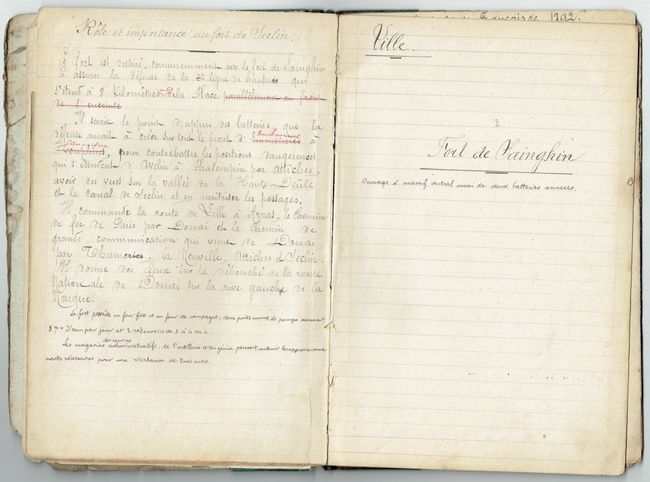 Rôle et importance du fort de Seclin.
Le fort est destiné, concurremment avec le fort de Sainghin
à assurer la défense de la ligne de hauteurs qui
s'étend à 8 Kilomètres de la Place parallèlement au front
de l'enceinte
Il serait le point d'appui des batteries, que la
défense aurait à créer sur tout le front d'
Templemars, pour contrebattre les positions dangereuses
qui s'étendent d'Avelin à Phalempin par Attiches,
avoir des vues sur la vallée de la Haute-Deûle
et le canal de Seclin et en maîtriser les passages.
Il commande la route de Lille à Arras, le chemin
de fer de Paris par Douai et le chemin de
grande communication qui vient de Douai
par Thumeries, la Neuville, Attiches et Seclin.
Il donne des feux sur le débouché de la route
Nationale de Douai sur la rive gauche de la
Marque.
Le fort possède un four fixe et un four de campagne, deux puits munis de pompe donnant
d'eau par jour et 2 réservoirs de
des services
Les magasins administratifs, de l'artillerie et du génie peuvent contenir les approvisionne
ments nécessaires pour une résistance de trois mois.
1792.
Ville.
2
Fort de Sainghin
Ouvrage à massif central muni de deux batteries annexes.